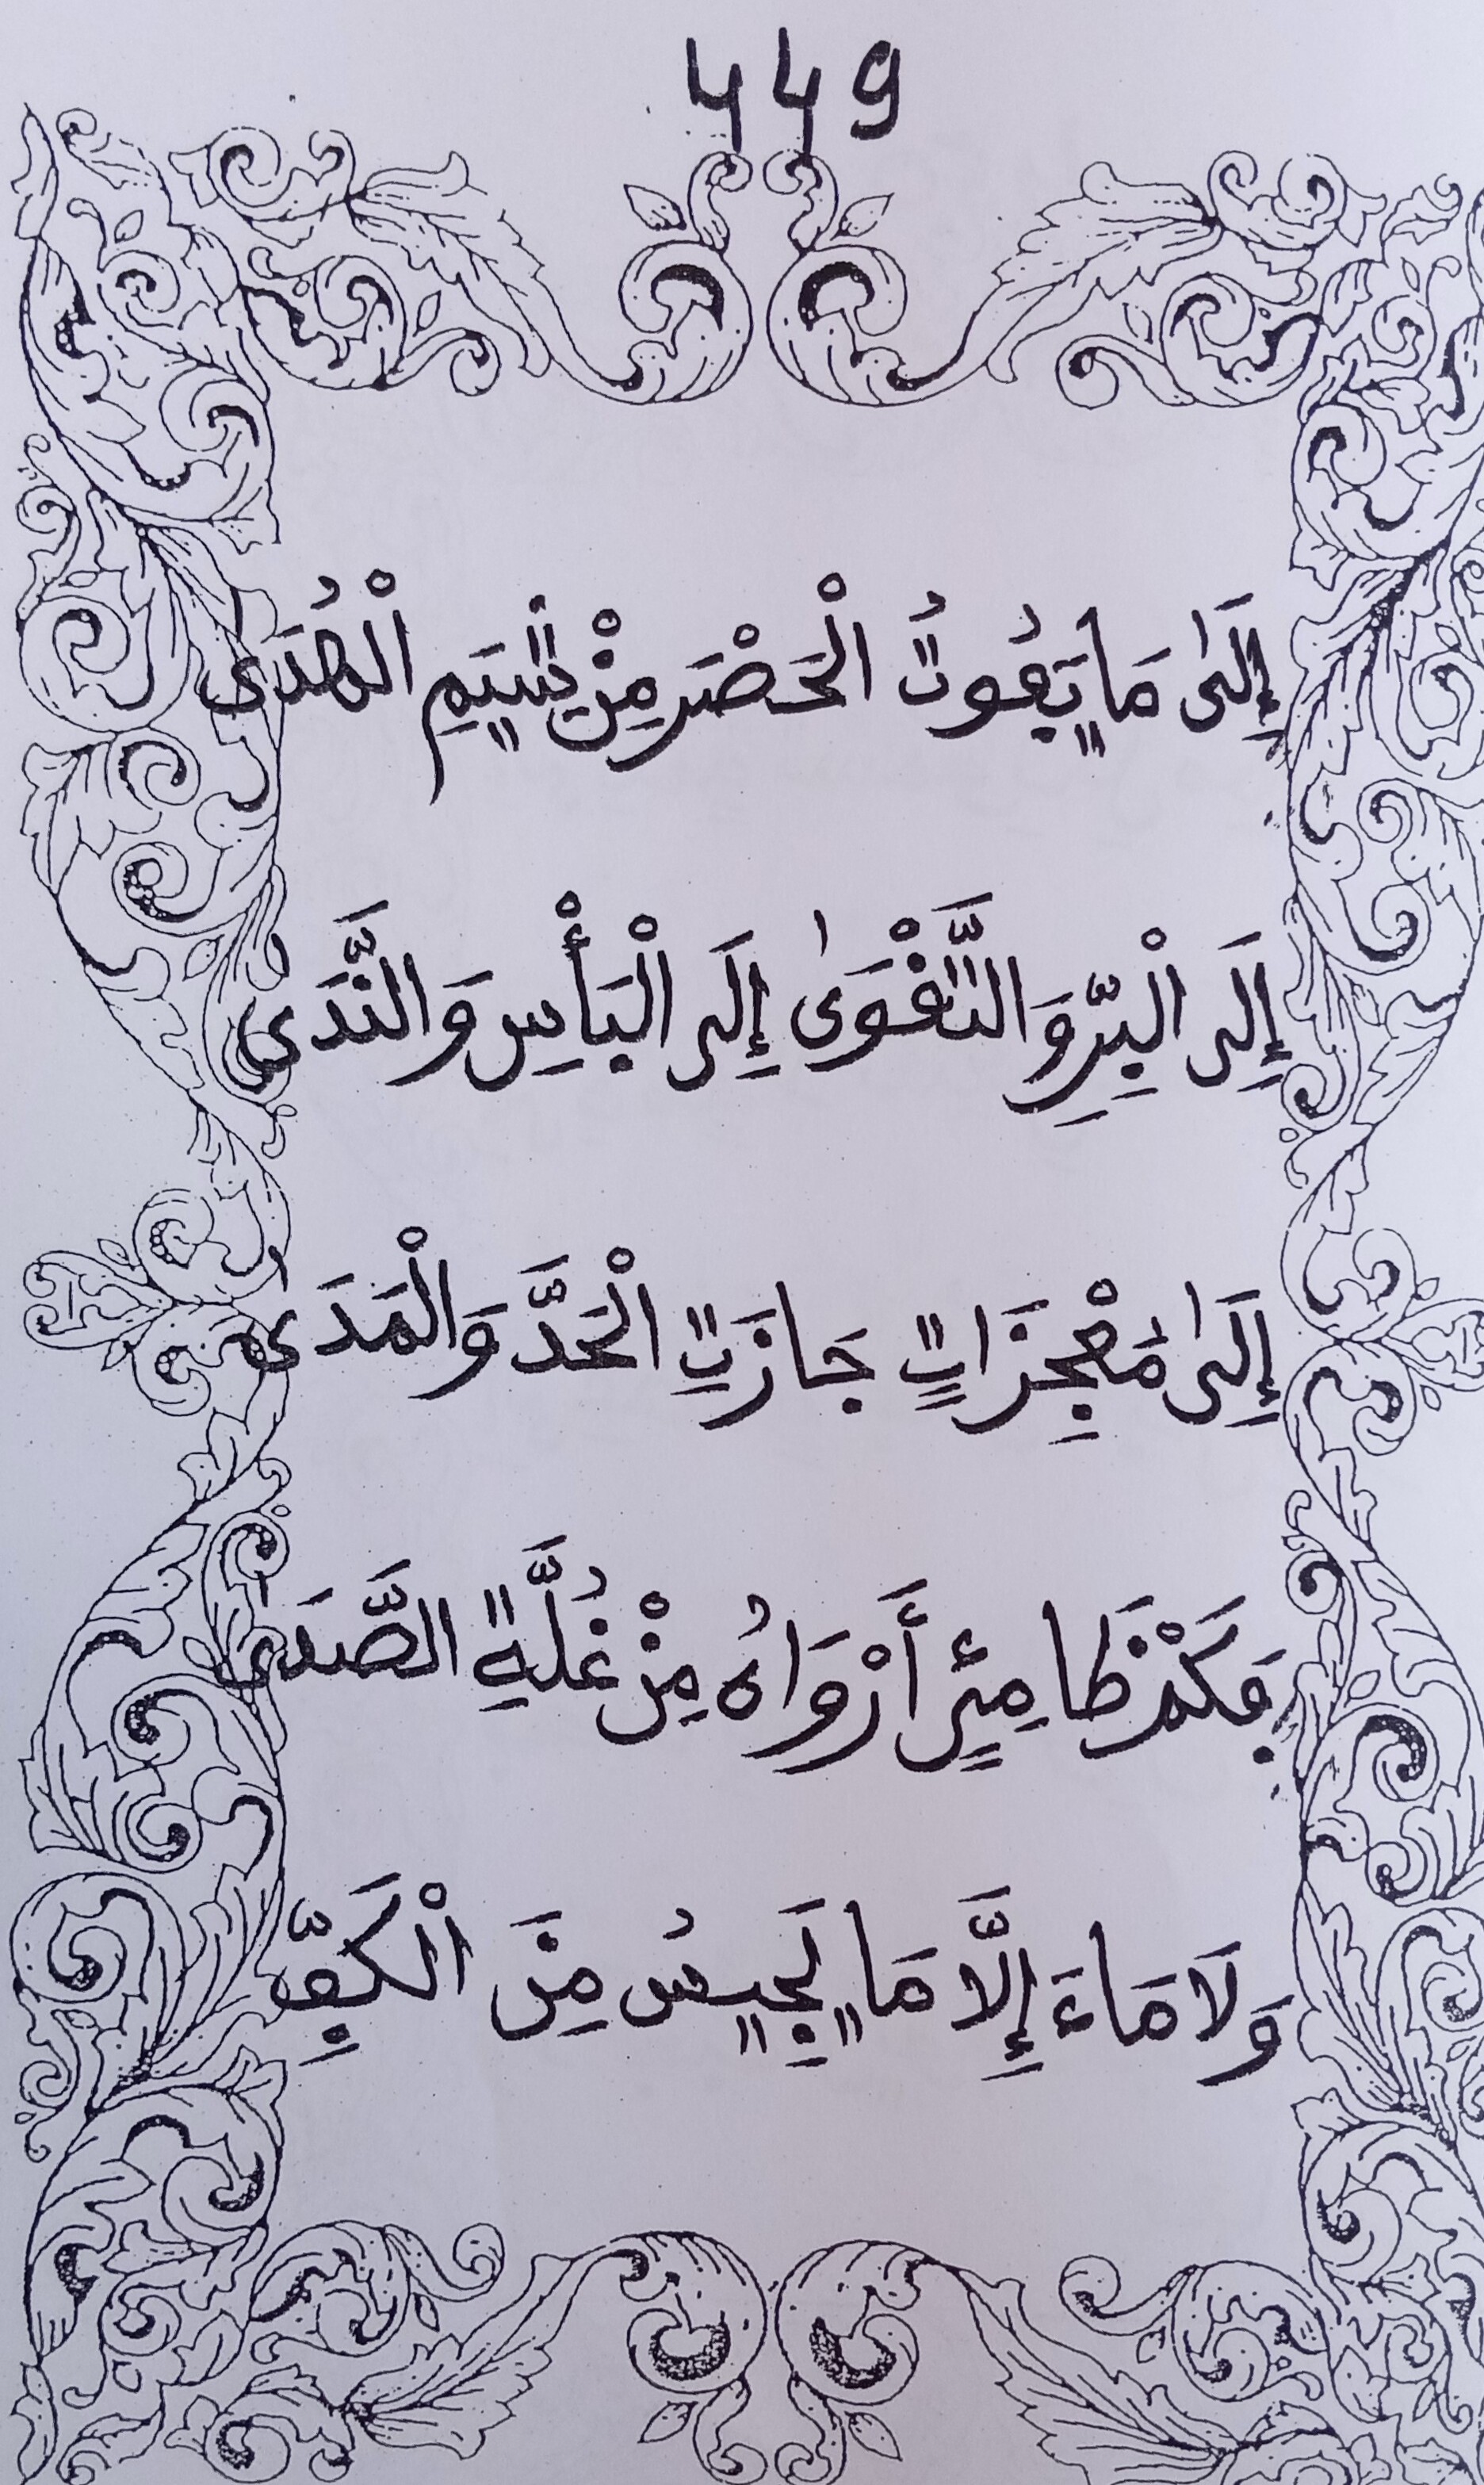 449
إِلَىٰ مَا يَفُوتُ الْحَصْرَ مِنْ شِيَمِ الْهُدَىٰ
إِلَى الْبِرِّ وَالتَّقْوَىٰ إِلَى الْبَأْسِ وَالنَّدَى
إِلَىٰ مُعْجِزَاتٍ جَازَتِ الْحَدَّ وَالْمَدَىٰ
فَكَمْ ظَامِئٍ أَرْوَاهُ مِنْ غُلَّةِ الصَّدَىٰ
وَلَا مَاءَ إِلَّا مَا يَجِيسُ مِنَ الْكَفِّ